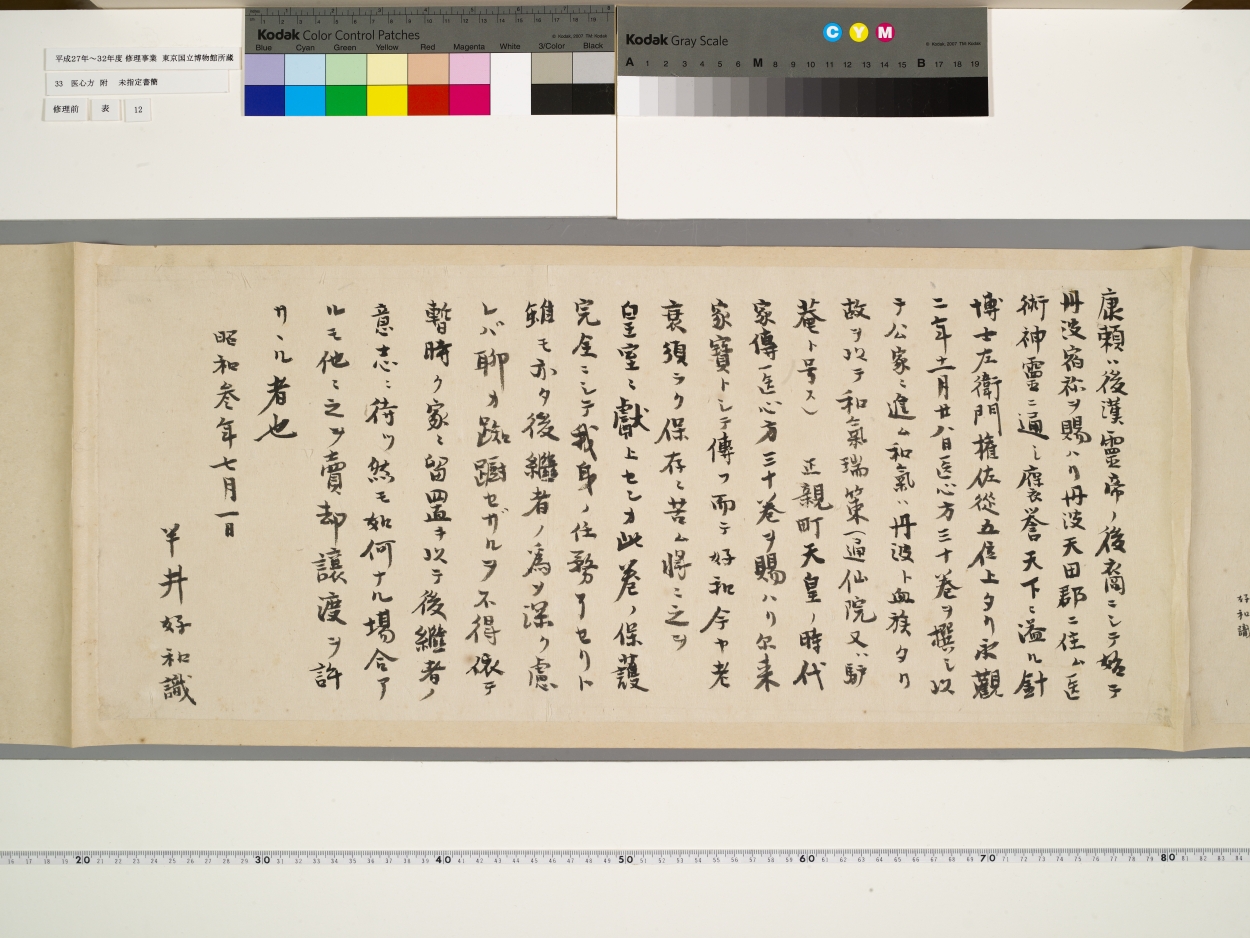 平成27年～32年度 修理事業 東京国立博物館所蔵
33 医心方 附 未指定書簡
修理前 表 12
Kodak Color Control Patches
Blue Cyan Green Yellow Red Magenta White 3/Color Black
Kodak Gray Scale
C Y M
A 1 2 3 4 5 6 M 8 9 10 11 12 13 14 15 B 17 18 19
康頼ハ後漢靈帝ノ後裔ニシテ始テ
丹波宿祢ヲ賜ハリ丹波天田郡ニ住ム医
術神靈ニ通シ譽天下ニ溢ル針
博士左衛門権佐従五位上タリ永觀
二年十一月廿八日医心方三十巻ヲ撰シ以
テ公家ニ進ム和氣ハ丹波ト血族タリ
故ヲ以テ和氣瑞策(通仙院又ハ驢
菴ト号ス) 正親町天皇ノ時代
家傳医心方三十巻ヲ賜ハリ尓来
家寶トシテ傳フ而テ好和今ヤ老
衰須ラク保存ニ苦ム将ニ之ヲ
皇室ニ獻上セシカ此巻ノ保護
完全ニシテ我身ノ任務了セリト
雖モ亦タ後継者ノ為メ深ク慮
レバ聊カ踟蹰セザルヲ不得依テ
暫時ク家ニ留置キ以テ後継者ノ
意志ニ待ツ然モ如何ナル場合ア
ルモ他ニ之ヲ賣却讓渡ヲ許
サヽル者也
昭和参年七月一日
半井好和識
好和識
20 30 40 50 60 70 80